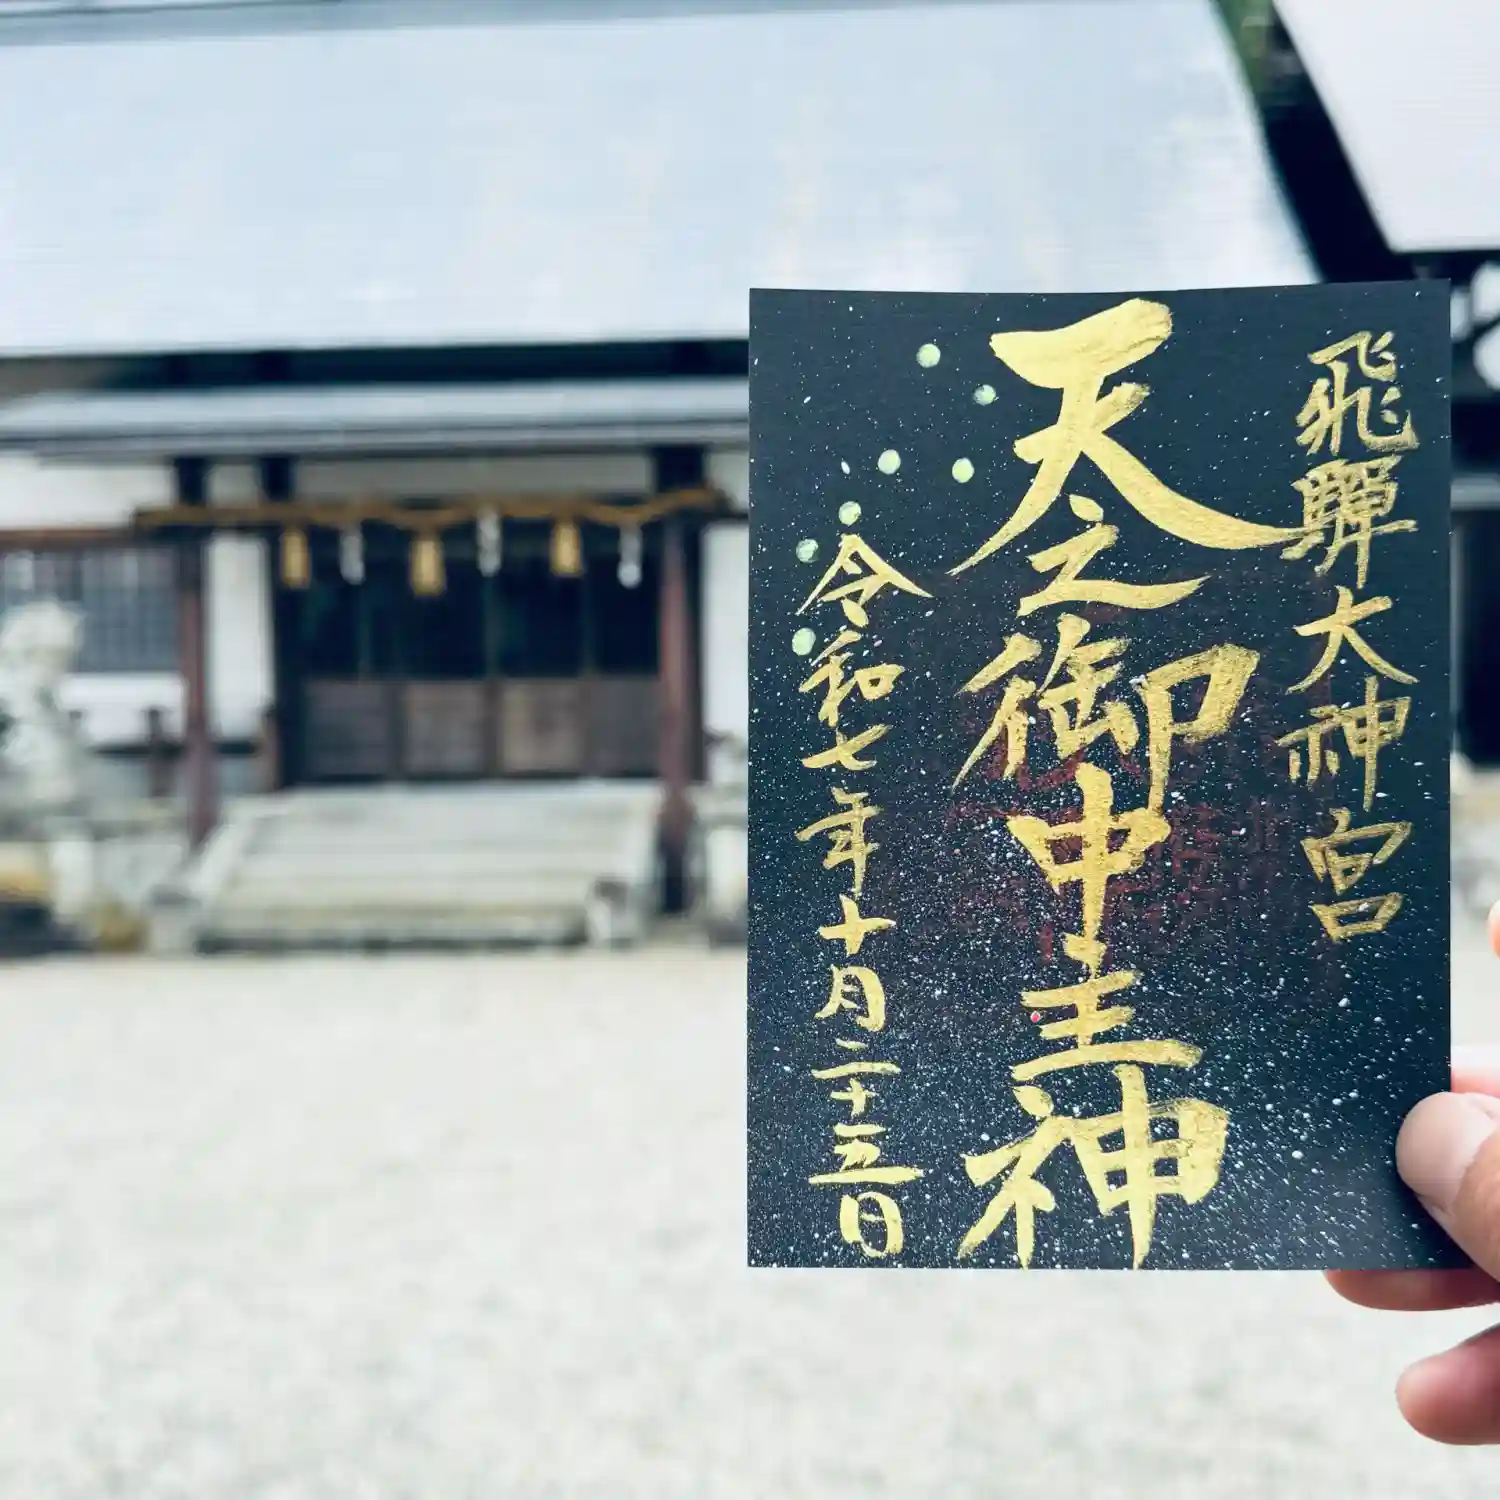 飛騨大神宮
天之御中主神
令和七年十月二十五日